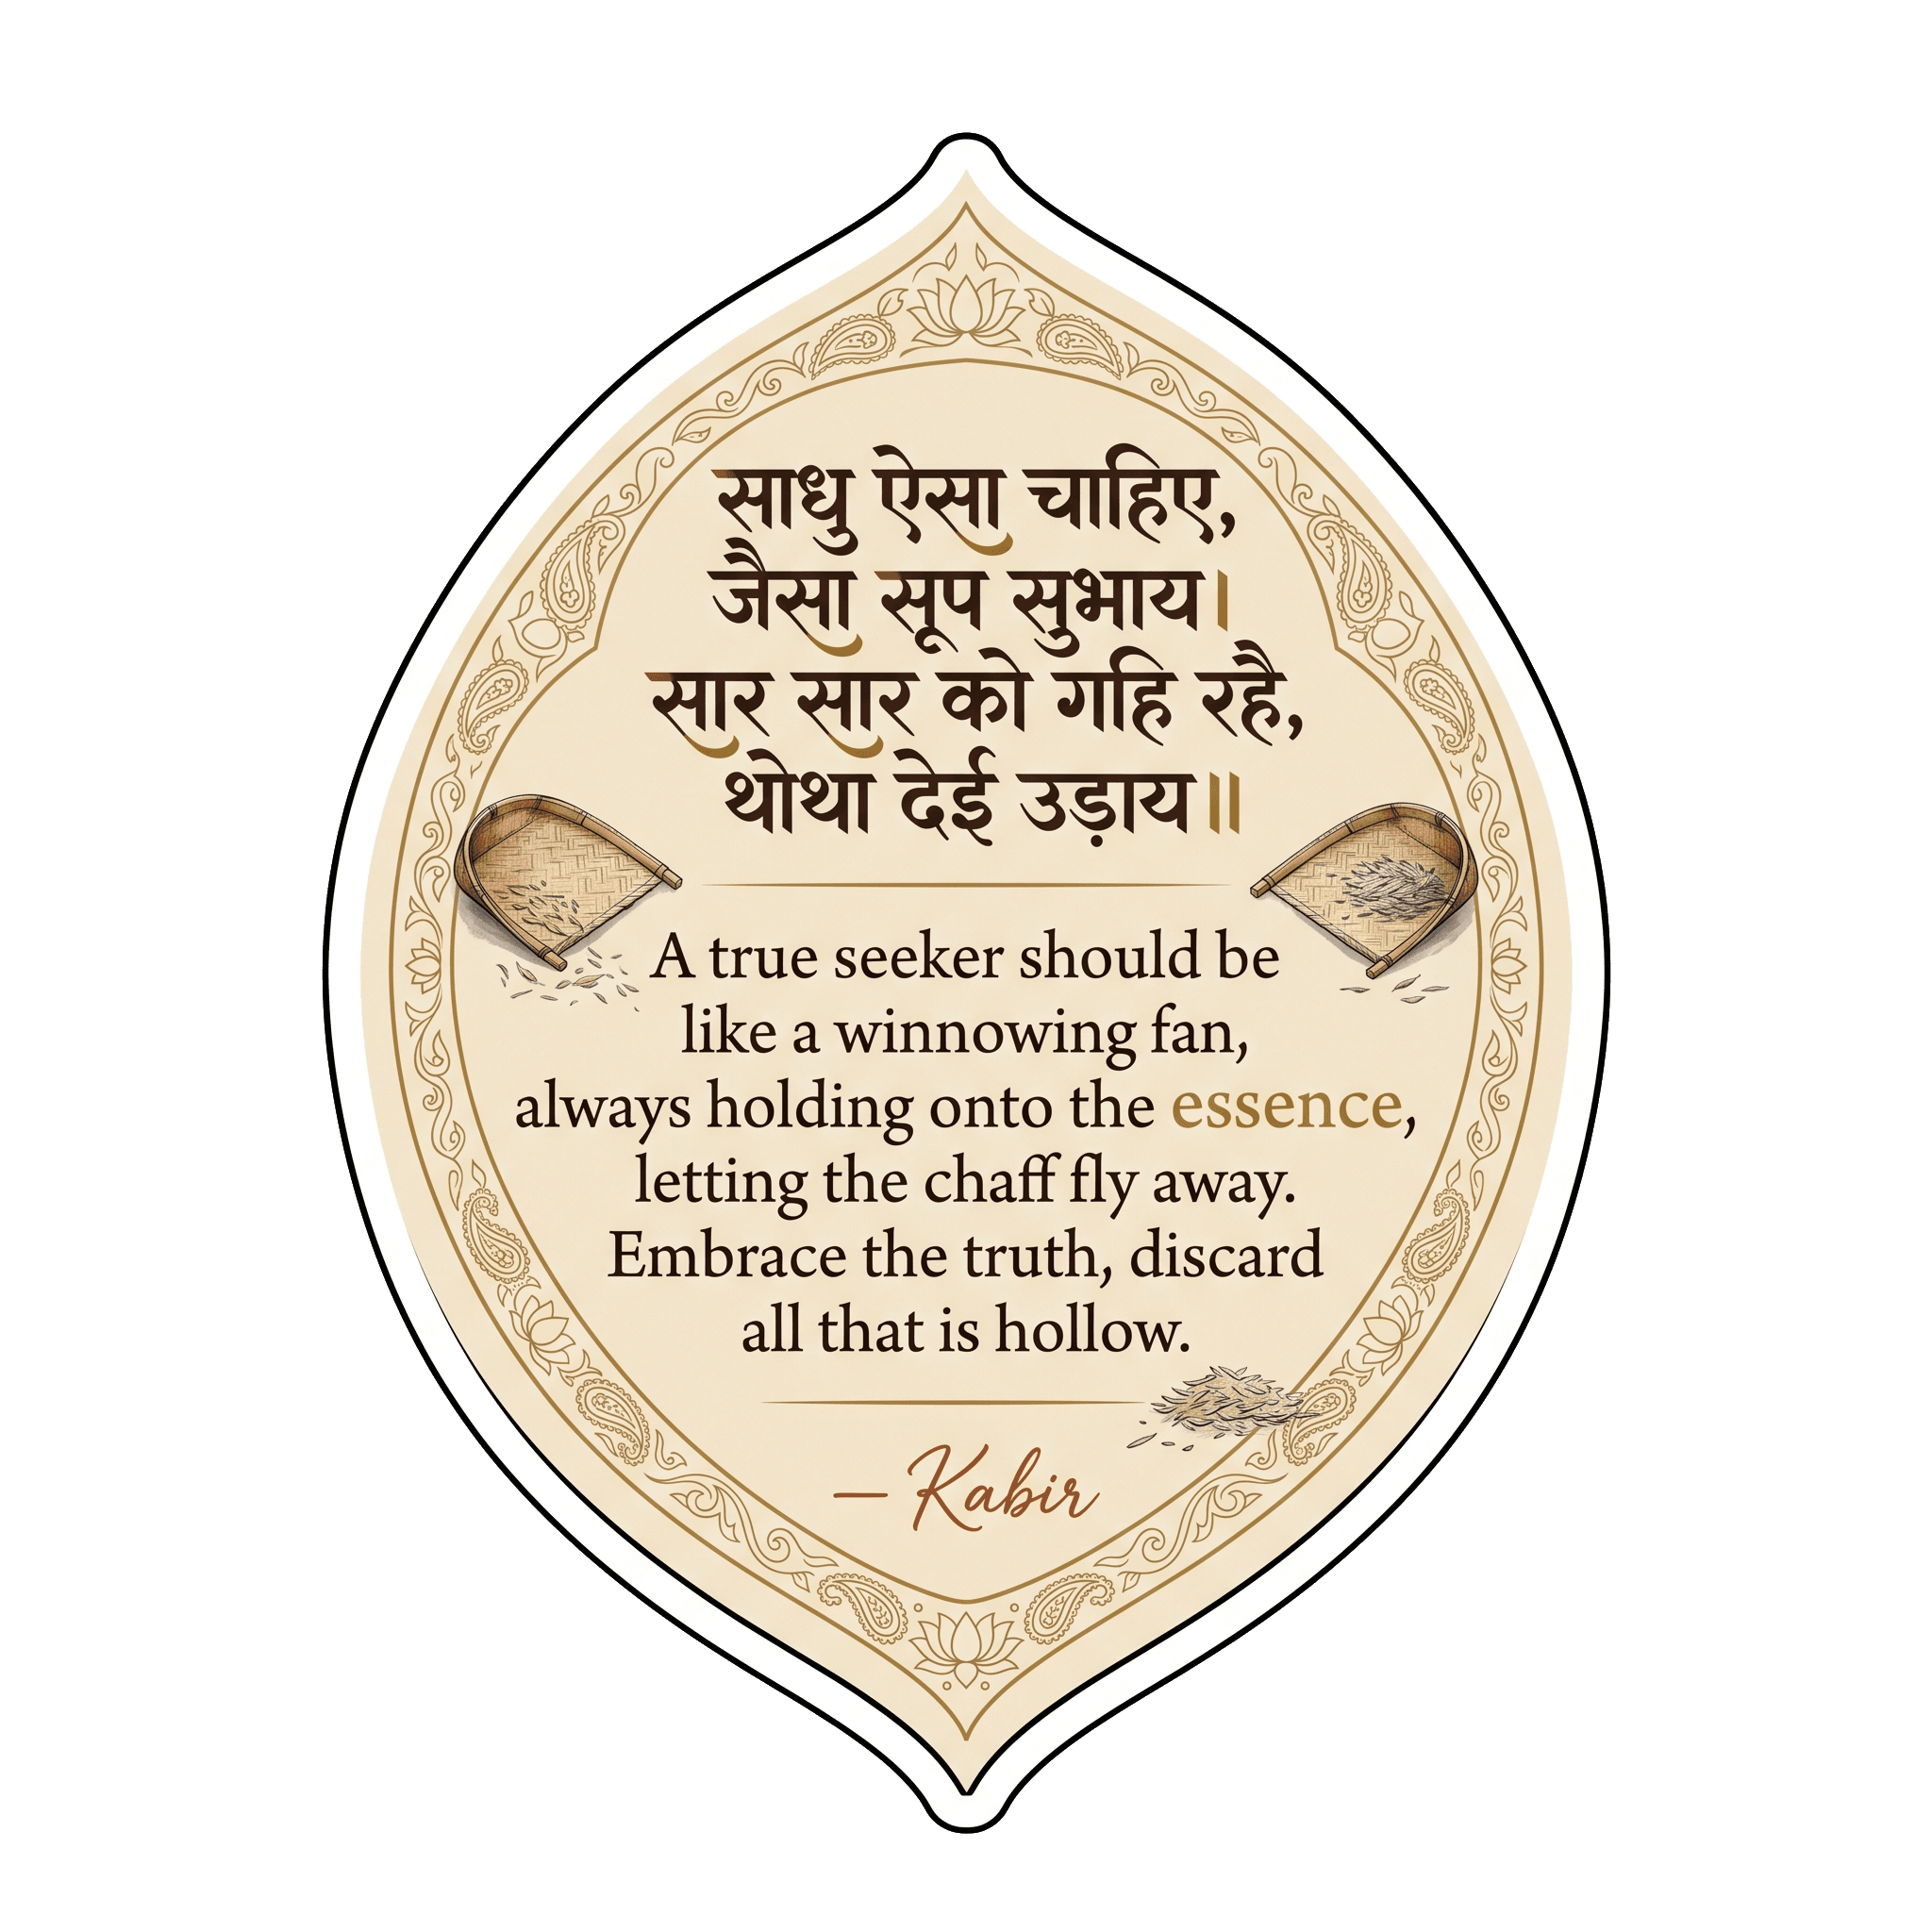 साधु ऐसा चाहिए,
जैसा सूप सुभाय।
सार सार को गहि रहै,
थोथा देई उड़ाय॥
A true seeker should be
like a winnowing fan,
always holding onto the essence,
letting the chaff fly away.
Embrace the truth, discard
all that is hollow.
— Kabir